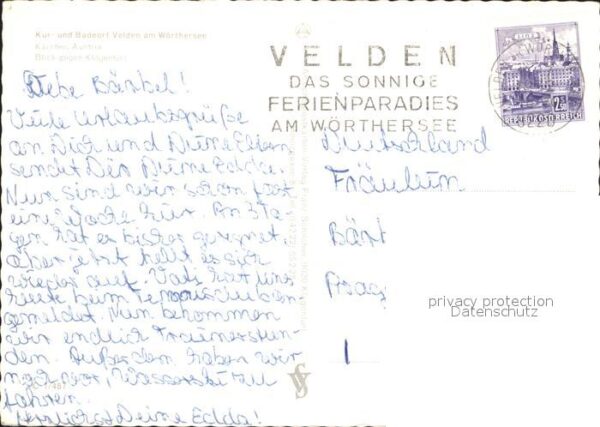 Kur- und Badeort Velden am Wörthersee
Kärnten, Austria
Blick gegen Klagenfurt
VELDEN
DAS SONNIGE
FERIENPARADIES
AM WÖRTHERSEE
REPUBLIK ÖSTERREICH
Liebe Bärbel!
Viele Urlaubsgrüße
an Dich und Deine Eltern
sendet Dir Deine Edda.
Nun sind wir schon fast
eine Woche hier. An 3 Ta
gen hat es bisher geregnet,
aber jetzt hellt es sich
wieder auf. Vati hat uns
heute beim Tennisclub an
gemeldet. Nun bekommen
wir endlich Trainerstun-
den. Außerdem haben wir
noch vor, Wasserski zu
fahren.
Herzlichst Deine Edda!
Deutschland
Fräulein
Bär
privacy protection
Datenschutz